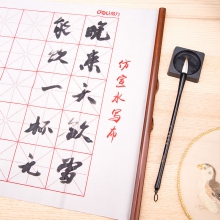 deli得力
仿宣水写布
晚来天欲雪
能饮一杯无